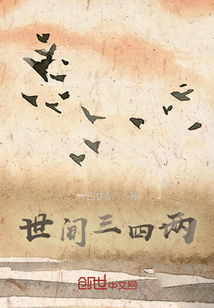 著
世间三四两
创世中文网